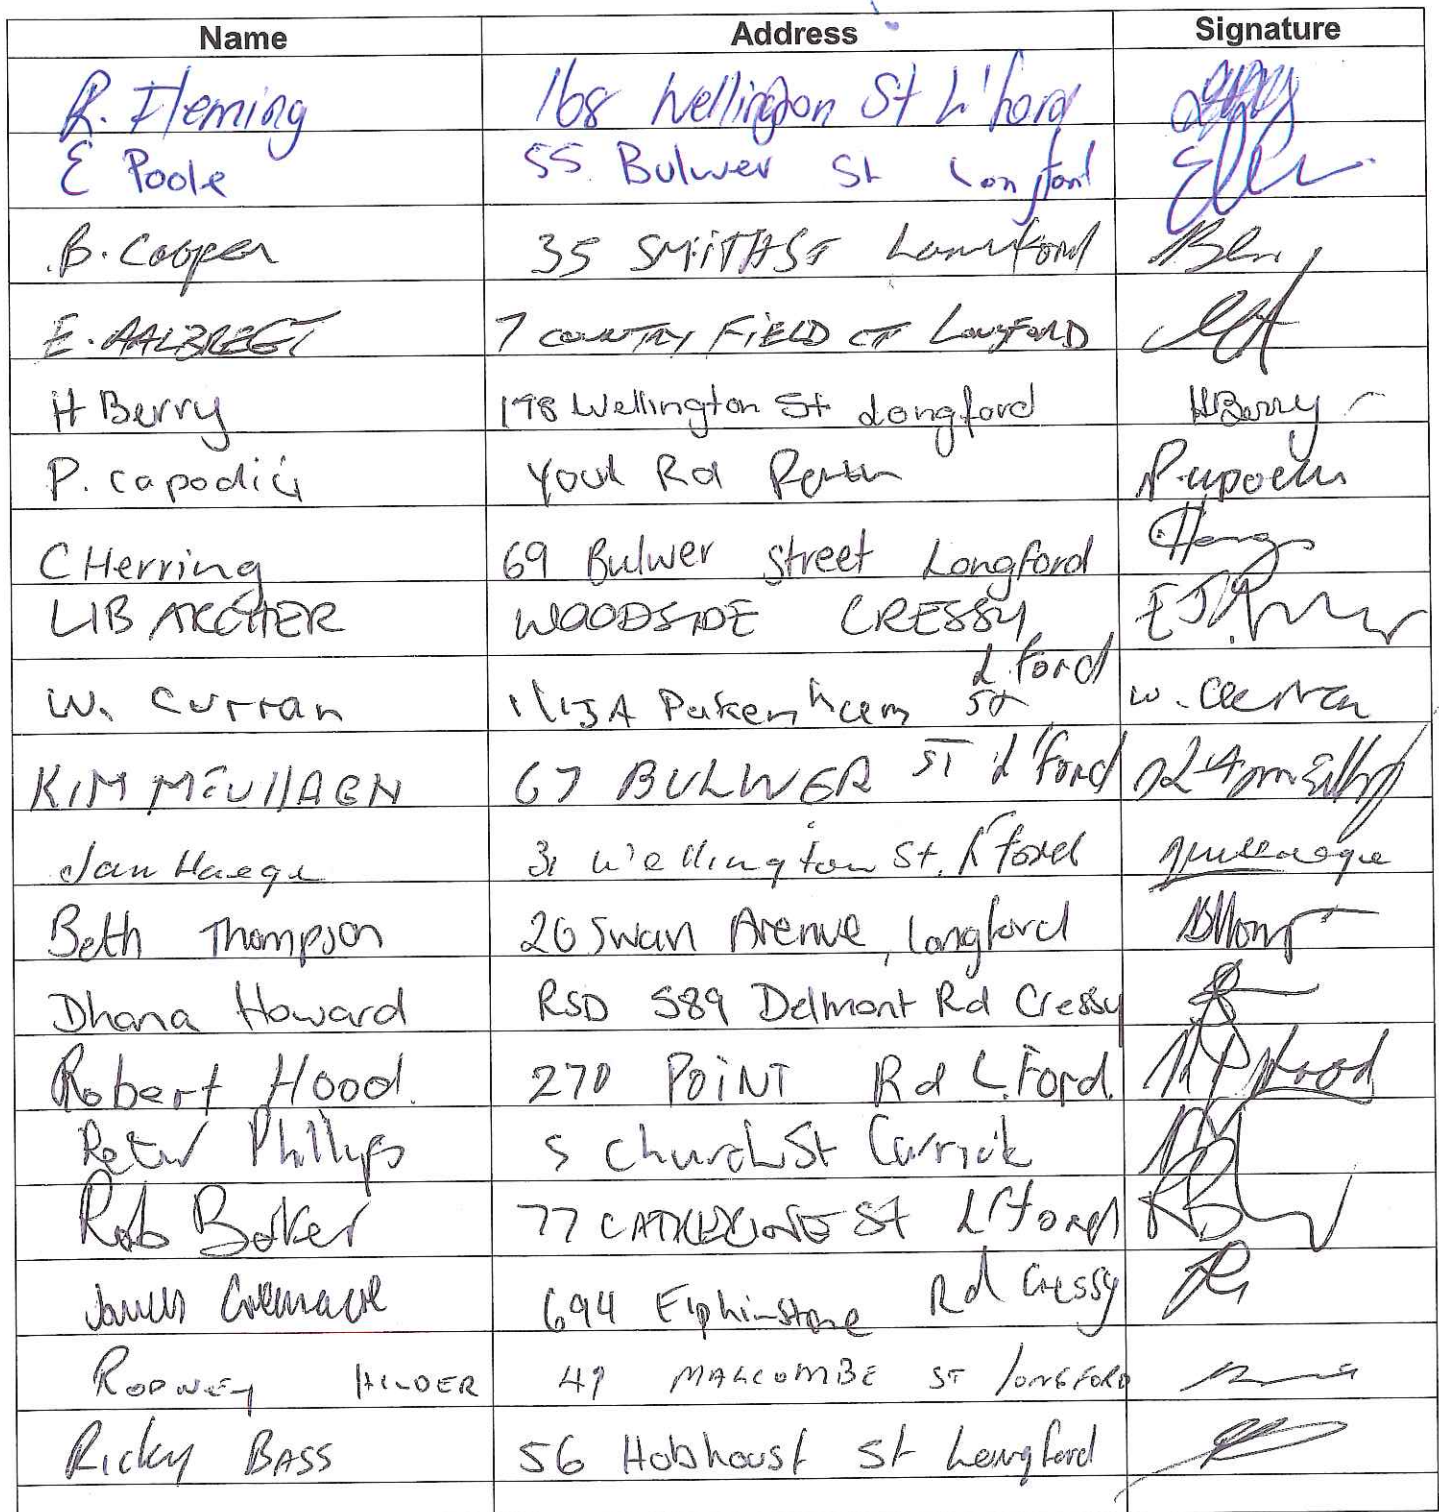 Name Address Signature
R. Fleming 168 Wellington St L'ford
E Poole 55 Bulwer St Longford
B. Cooper 35 SMITH ST Longford
E. AALBREGT 7 COUNTRY FIELD CT LONGFORD
H Berry 198 Wellington St Longford H Berry
P. Capodici Youl Rd Perth
C Herring 69 Bulwer Street Longford
LIB ARCHER WOODSIDE CRESSY
L.ford
W. Curran 1/13A Pakenham St W. Curran
KIM 67 BULWER ST L'ford
Jan Haege 31 Wellington St. L'ford
Beth Thompson 26 Swan Avenue, Longford
Dhana Howard RSD 589 Delmont Rd Cressy
Robert Hood. 270 POINT Rd L.Ford. Hood
Peter Phillips 5 Church St Carrick
Rob Baker 77 CATHERINE St L'ford
James 694 Elphinstone Rd Cressy
RODNEY HILDER 49 MALCOMBE ST LONGFORD
Ricky BASS 56 Hobhoust St Longford